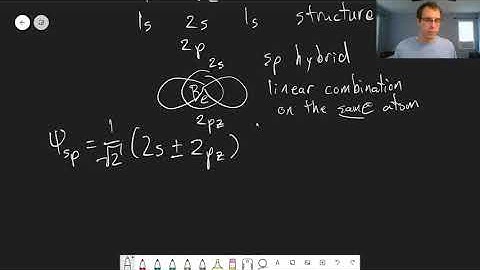 1s 2s 1s structure
2p
2s
sp hybrid
Be
linear combination
on the same atom
2pz
Ψsp = 1/√2 (2s ± 2pz)